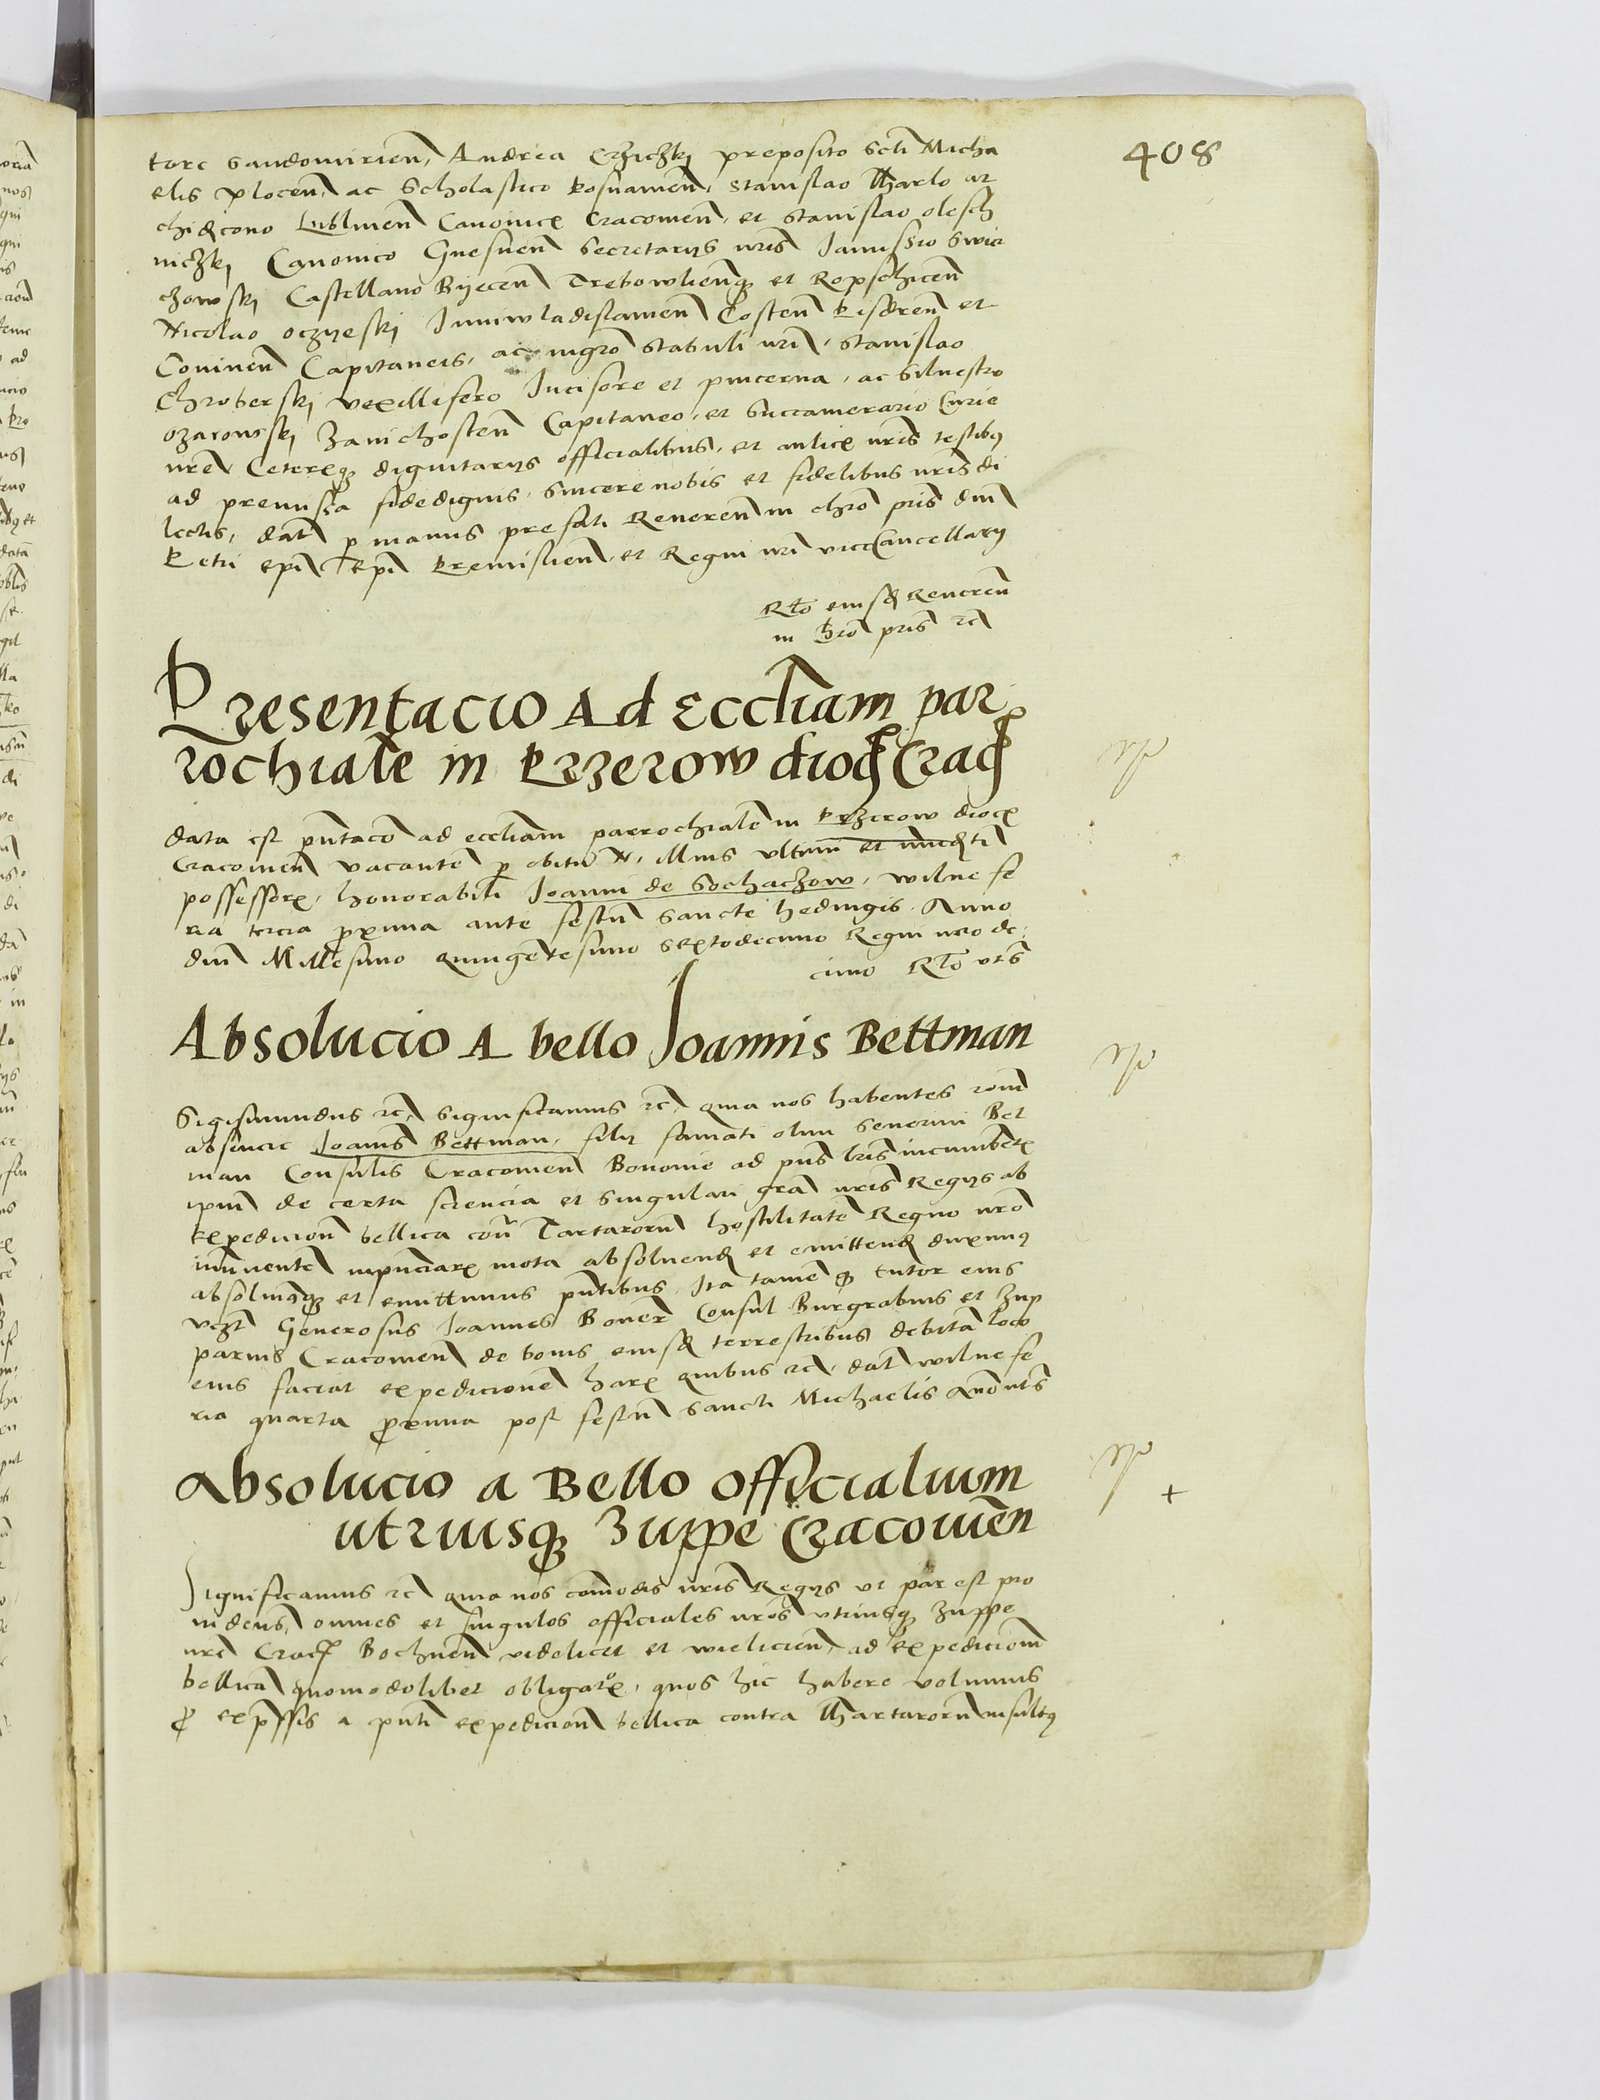 408
tore Sandomirien, Andrea Crziczki preposito scti Micha
elis Plocen, ac Scholastico Posnanien, Stanislao Tharlo ar
chidicono Lublinen Canonice Cracovien, et Stanislao olesch
niczki Canonico Gnesnen Secretarijs nris Janussio Swier
chowski Castellano Byecen Trebowlienq et Ropschicen
Nicolao oczyeski Juniwladislavien Costen Pisdren et
Coninen Capitaneis, ac mgro stabuli nri, Stanislao
Chroberski vexillifero Incisore et pincerna, ac Silvestro
ozarowski Zavichosten Capitaneo, et Succamerario Curie
nre Ceterisq dignitarijs officialibus, et aulicis nris testibq
ad premissa fidedignis, sincere nobis et fidelibus nris di
lectis, dat p manus prefati Reveren in chro pris dni
Petri epi Premislien, et Regni nri viceCancellarij
Rto eiusd Reveren
in chro pris rc
Presentacio Ad Eccliam par
rochiale in Przerow dioc Crac
data est pntaco ad eccliam parrochiale in Przerow dioc
Cracovien vacante p obitu N, illius ultimi et immediti
possessoris, honorabili Joanni de Sochaczow, wilne fe
ria tercia proxima ante festu Sancte hedvigis, Anno
dni Millesimo quingentesimo Sextodecimo Regni nro de
cimo Rto uts
Absolucio A bello Joannis Bettman
Sigismundus rc, significamus rc, quia nos habentes rom
absencie Joanis Bettman, filij famati olim Severini Bet
man Consulis Cracovien Bononie ad pns lris incumbetis
ipm de certa sciencia et singulari gra nris Regijs ab
Expedicion bellica con Tartarorum hostilitate Regno nro
absolvimq et emittimus pntibus, Ita tame q tutor eius
vczt Generosus Joannes Boner Consul Burgrabius et Zup
parius Cracovien de bonis eiusd terrestribus debita loco
eius faciat expedicione haru quibus rc, dat wilne fe
ria quarta proxima post festu Sancti Michaelis Anno uts
Absolucio a Bello officialium
utriusq Zuppe Cracovien
Significamus rc quia nos comodis nris Regijs ut par est pro
videns, omnes et singulos officiales nros utriusq zuppe
nre Crac Bochnen videlicet et wielicien, ad Expediciom
bellica quomodolibet obligatos, quos hic habere volumus
p expssis a pnti expedicion bellica contra Thartarorum insultq